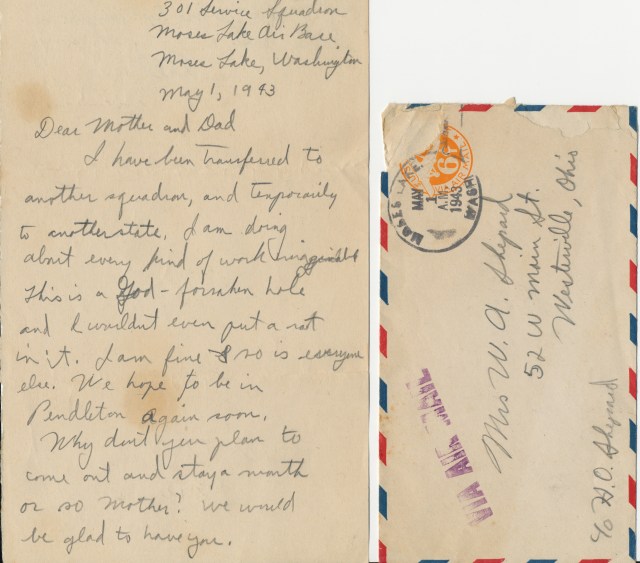 301 Service Squadron
Moses Lake Air Base
Moses Lake, Washington
May 1, 1943
Dear Mother and Dad
I have been transferred to
another squadron, and temporarily
to another state. I am doing
about every kind of work
This is a God-forsaken hole
and I wouldn't even put a rat
in it. I am fine & so is everyone
else. We hope to be in
Pendleton again soon.
Why don't you plan to
come out and stay a month
or so Mother? We would
be glad to have you.
MOSES LAKE
WASH.
MAY
1
A.M.
1943
6¢
VIA AIR MAIL
Mrs W. A. Shepard
52 W main St.
Westerville, Ohio
c/o H.O. Shepard